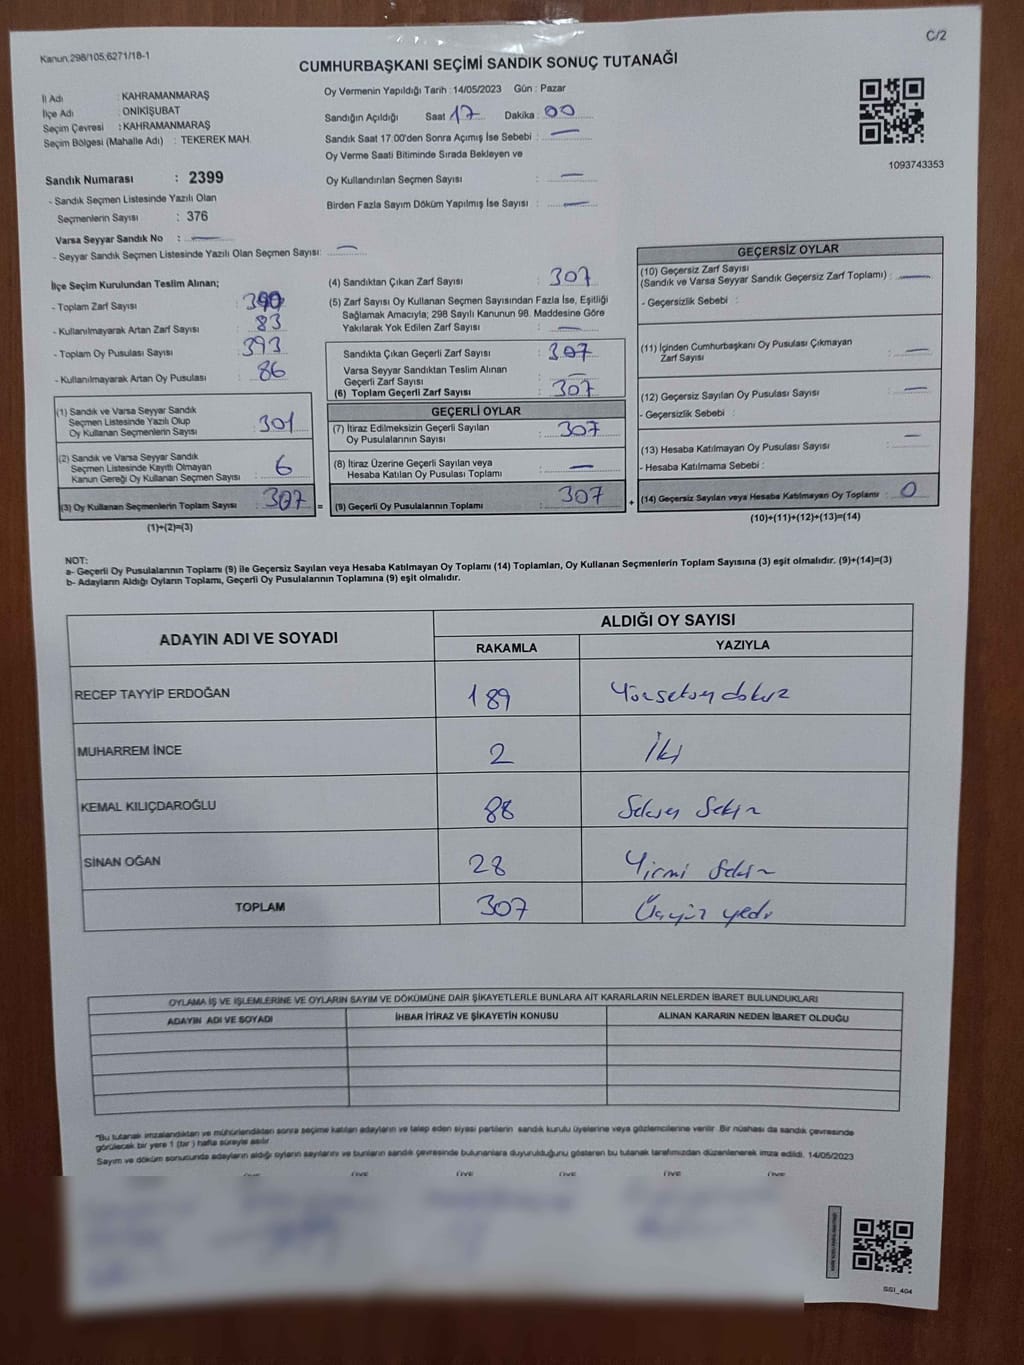 C/2
Kanun.298/105,6271/18-1
CUMHURBAŞKANI SEÇİMİ SANDIK SONUÇ TUTANAĞI
İl Adı : KAHRAMANMARAŞ
İlçe Adı : ONİKİŞUBAT
Seçim Çevresi : KAHRAMANMARAŞ
Seçim Bölgesi (Mahalle Adı) : TEKEREK MAH.
Sandık Numarası : 2399
- Sandık Seçmen Listesinde Yazılı Olan
Seçmenlerin Sayısı : 376
Varsa Seyyar Sandık No : —
- Seyyar Sandık Seçmen Listesinde Yazılı Olan Seçmen Sayısı: —
Oy Vermenin Yapıldığı Tarih : 14/05/2023 Gün : Pazar
Sandığın Açıldığı Saat 17 Dakika : 00
Sandık Saat 17.00'den Sonra Açımış İse Sebebi : —
Oy Verme Saati Bitiminde Sırada Bekleyen ve
Oy Kullandırılan Seçmen Sayısı : —
Birden Fazla Sayım Döküm Yapılmış İse Sayısı : —
1093743353
İlçe Seçim Kurulundan Teslim Alınan;
- Toplam Zarf Sayısı :
- Kullanılmayarak Artan Zarf Sayısı : 83
- Toplam Oy Pusulası Sayısı : 393
- Kullanılmayarak Artan Oy Pusulası : 86
(1) Sandık ve Varsa Seyyar Sandık
Seçmen Listesinde Yazılı Olup
Oy Kullanan Seçmenlerin Sayısı : 301
(2) Sandık ve Varsa Seyyar Sandık
Seçmen Listesinde Kayıtlı Olmayan
Kanun Gereği Oy Kullanan Seçmen Sayısı : 6
(3) Oy Kullanan Seçmenlerin Toplam Sayısı : 307 =
(1)+(2)=(3)
(4) Sandıktan Çıkan Zarf Sayısı : 307
(5) Zarf Sayısı Oy Kullanan Seçmen Sayısından Fazla İse, Eşitliği
Sağlamak Amacıyla; 298 Sayılı Kanunun 98. Maddesine Göre
Yakılarak Yok Edilen Zarf Sayısı : —
Sandıkta Çıkan Geçerli Zarf Sayısı : 307
Varsa Seyyar Sandıktan Teslim Alınan
Geçerli Zarf Sayısı : —
(6) Toplam Geçerli Zarf Sayısı : 307
GEÇERLİ OYLAR
(7) İtiraz Edilmeksizin Geçerli Sayılan
Oy Pusulalarının Sayısı : 307
(8) İtiraz Üzerine Geçerli Sayılan veya
Hesaba Katılan Oy Pusulası Toplamı : —
(9) Geçerli Oy Pusulalarının Toplamı : 307 +
GEÇERSİZ OYLAR
(10) Geçersiz Zarf Sayısı
(Sandık ve Varsa Seyyar Sandık Geçersiz Zarf Toplamı) : —
- Geçersizlik Sebebi :
(11) İçinden Cumhurbaşkanı Oy Pusulası Çıkmayan
Zarf Sayısı : —
(12) Geçersiz Sayılan Oy Pusulası Sayısı : —
- Geçersizlik Sebebi :
(13) Hesaba Katılmayan Oy Pusulası Sayısı : —
- Hesaba Katılmama Sebebi :
(14) Geçersiz Sayılan veya Hesaba Katılmayan Oy Toplamı : 0
(10)+(11)+(12)+(13)=(14)
NOT:
a- Geçerli Oy Pusulalarının Toplamı (9) ile Geçersiz Sayılan veya Hesaba Katılmayan Oy Toplamı (14) Toplamları, Oy Kullanan Seçmenlerin Toplam Sayısına (3) eşit olmalıdır. (9)+(14)=(3)
b- Adayların Aldığı Oyların Toplamı, Geçerli Oy Pusulalarının Toplamına (9) eşit olmalıdır.
ADAYIN ADI VE SOYADI
ALDIĞI OY SAYISI
RAKAMLA YAZIYLA
RECEP TAYYİP ERDOĞAN 189 Yüzseksendokuz
MUHARREM İNCE 2 İki
KEMAL KILIÇDAROĞLU 88 Seksen Sekiz
SİNAN OĞAN 28 Yirmi Sekiz
TOPLAM 307 Üçyüz yedi
OYLAMA İŞ VE İŞLEMLERİNE VE OYLARIN SAYIM VE DÖKÜMÜNE DAİR ŞİKAYETLERLE BUNLARA AİT KARARLARIN NELERDEN İBARET BULUNDUKLARI
ADAYIN ADI VE SOYADI İHBAR İTİRAZ VE ŞİKAYETİN KONUSU ALINAN KARARIN NEDEN İBARET OLDUĞU
"Bu tutanak imzalandıktan ve mühürlendikten sonra seçime katılan adayların ve talep eden siyasi partilerin sandık kurulu üyelerine veya gözlemcilerine verilir. Bir nüshası da sandık çevresinde
görülecek bir yere 1 (bir) hafta süreyle asılır.
Sayım ve döküm sonucunda adayların aldığı oyların sayılarını ve bunların sandık çevresinde bulunanlara duyurulduğunu gösteren bu tutanak tarafımızdan düzenlenerek imza edildi. 14/05/2023
SSI_404